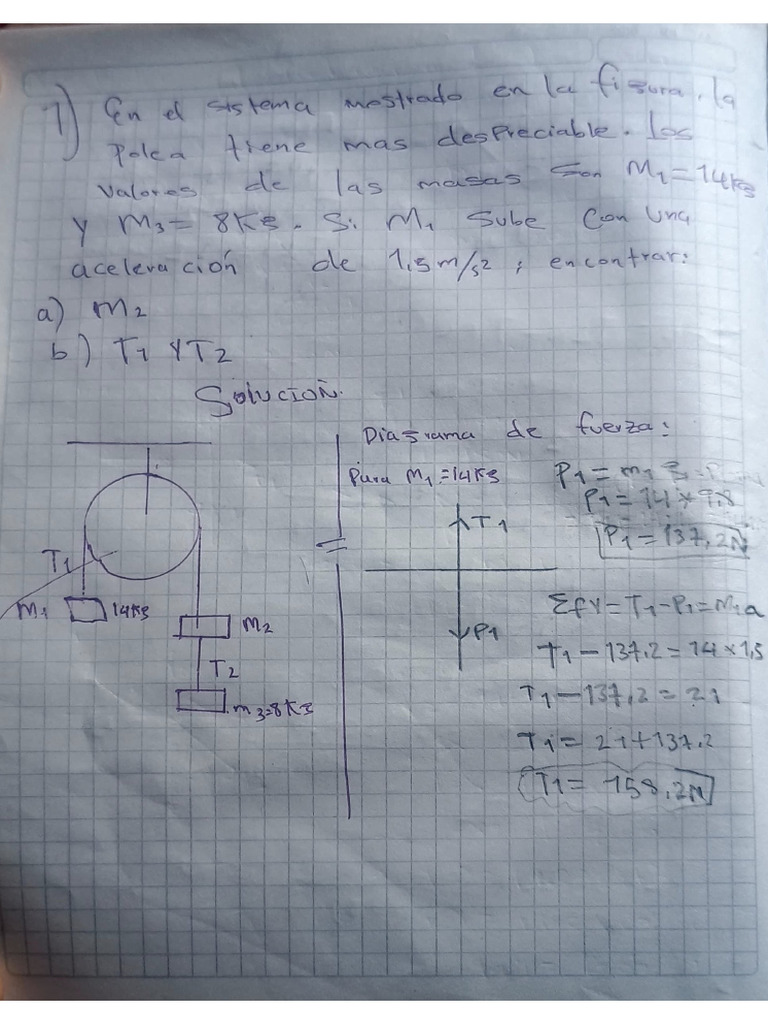 1) En el sistema mostrado en la figura, la
Polea tiene mas despreciable. Los
Valores de las masas son M1=14Kg
y M3=8Kg. Si M1 sube con una
aceleración de 1,5m/s2; encontrar:
a) m2
b) T1 Y T2
Solución.
T1
M1
14Kg
M2
T2
m3=8Kg
Diagrama de fuerza:
Para M1=14Kg
T1
P1
P1=m1 g
P1=14×9,8
P1=137,2N
ΣfY=T1-P1=M1a
T1-137,2=14×1,5
T1-137,2=21
T1=21+137,2
T1=158,2N